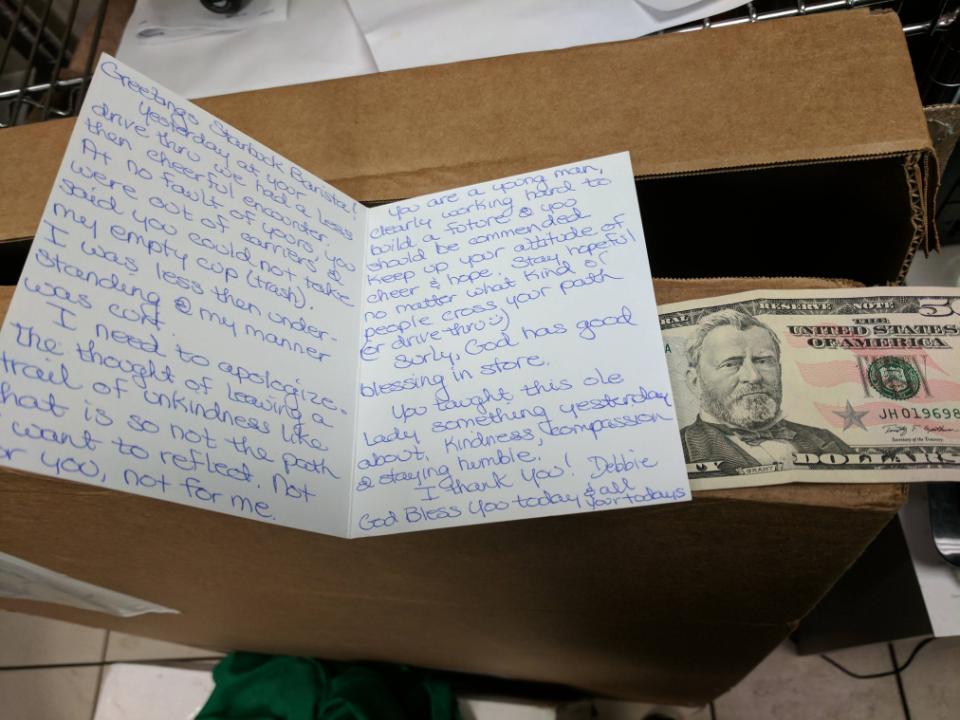 Greetings Starbuck Barista!
Yesterday at your
drive thru we had a less
then cheerful encounter.
At no fault of yours, you
were out of carriers &
said you could not take
my empty cup (trash).
I was less then under-
standing & my manner
was curt.
I need to apologize.
The thought of leaving a
trail of unkindness like
that is so not the path
I want to reflect. Not
for you, not for me.
You are a young man,
clearly working hard to
build a future & you
should be commended
keep up your attitude of
cheer & hope. Stay hopeful
no matter what kind of
people cross your path
(or drive thru :)
Surly, God has good
blessing in store.
You taught this ole
Lady something yesterday
about, kindness, compassion
& staying humble.
I thank you! Debbie
God Bless You today & all
your todays
RESERVE NOTE
THE
UNITED STATES
OF AMERICA
JH019698
Secretary of the Treasury.
GRANT
DOLLARS